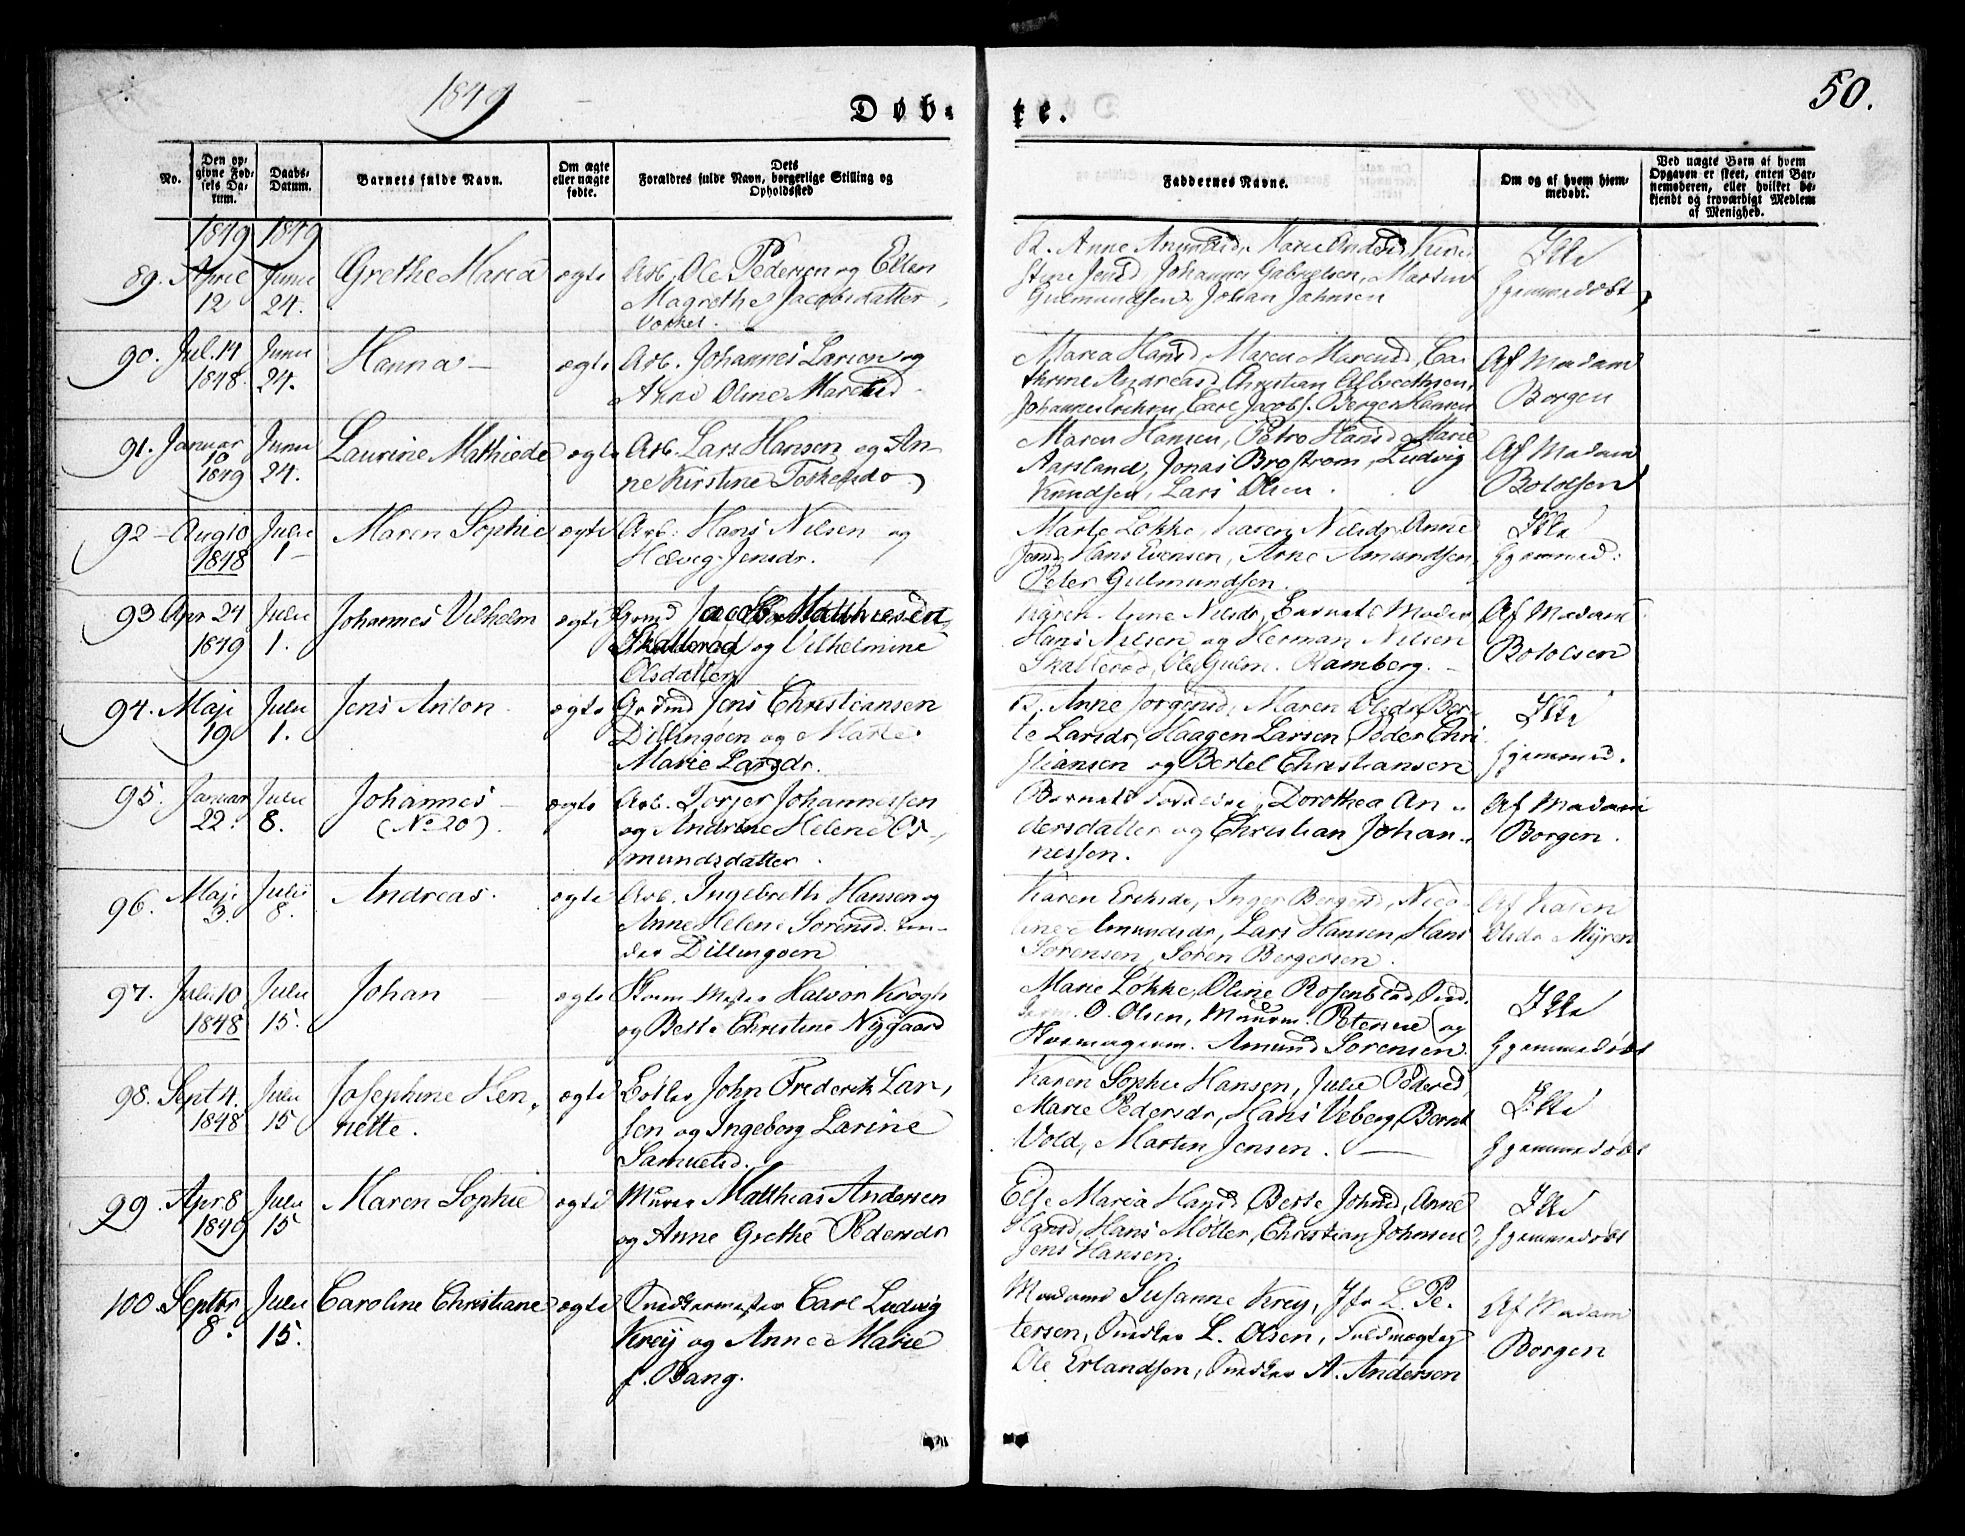 1849
Døb-
te.
50.
No.
Den op-
givne Fød-
sels Da-
tum.
Daabs-
Datum.
Barnets fulde Navn.
Om ægte
eller uægte
fødte.
Dets
Forældres fulde Navn, borgerlige Stilling og
Opholdssted
Faddernes Navne.
Om og af hvem hjem-
medøbt.
Ved uægte Børn af hvem
Opgaven er skeet, enten Bar-
nemoderen, eller hvilket be-
kjendt og troværdigt Medlem
af Menighed.
1849 1849
89. April Junii Grethe Maria ægte Arb. Ole Pedersen og Ellen
12 24. Magrethe Jacobsdatter,
Anne Amundsd, Marie Andersd Kir
stine Jensd, Johannes Gabrielsen, Martin
Gulmundsen, Johan Jahnsen
Ikke
hjemmedøbt,
90. Jul. 14 Junii Hanna – ægte Arb. Johannes Larsen og
1848. 24. Anne Oline Marcusd
Maria Hansd, Maren Marcusd, Ca-
thrine Andreasd, Christian Albrethsen,
Johannes Erichsen, Carl Jacobs. Berger Hansen
Af Madam
Borgen
91. Januar Junii Laurine Mathiede ægte Arb. Lars Hansen og An-
10 1849 24. ne Kirstine Torkelsdr.
Maren Hansen, Petro Hansd, Marie
Aarsland, Jonas Brostrøm, Ludvig
Knudsen, Lars Olsen.
Af Madam
Bololsen
92 – Aug 10 Julii Maren Sophie ægte Arb. Hans Nilsen og
1848 1 – Helveg Jensdr.
Marte Løkke, Karen Nilsdr, Anne
Jensd, Hans Evensen, Arne Amundsen,
Peter Gulmundsen.
Ikke
hjemmed:
93 Apr 24 Julii Johannes Vilhelm ægte Grmd Jacob Matthiesen
1849 1. Skallerød og Vilhelmine
Olsdatter
Karen Anne Nilsdr, Barnets Moder
Hans Nilsen og Herman Nilsen
Skallerød, Ole Gulm. Ramberg. –
Af Madam
Bololsen
94. Maji Julii Jens Anton ægte Grdmd Jens Christiansen
19 1. Dillingøen og Marte
Marie Larsdr.
B. Anne Jørgensd, Maren Olsdr, Ber
te Larsdr, Haagen Larsen, Peder Chri
stiansen og Bertel Christiansen
Ikke
hjemmed.
95. Januar Julii Johannes – ægte Arb. Torger Johannessen
22. 8. (No 20) og Andrine Helene As,
mundsdatter.
Barnets Forældre, Dorothea An-
dersdatter og Christian Johan-
nessen.
Af Madam
Borgen.
96. Maji Julii Andreas. ægte Arb. Ingebreth Hansen og
3. 8. Anne Helene Sørensd. un-
der Dillingøen
Karen Eriksdr, Inger Bergersd, Nico-
line Amundsdr, Lars Hansen, Hans
Sørensen, Søren Bergersen.
Af Karen
Olsdr Myren
97. Julii 10 Julii Johan ægte Skom. Mester Halvor Krogh
1848 15. og Berte Christine Nygaard
Marie Løkke, Oline Rosenblad,
O. Olsen, Muurm. Petersen og
Hosmagerm. Amund Sørensen.
Ikke
hjemmedøbt
98. Sept 4. Julii Josephine Hen, ægte John Frederik Lar,
1848 15 nette. sen og Ingeborg Larine
Samuelsd.
Karen Sophie Hansen, Julie Pedersd,
Marie Pedersdr, Hans Veberg, Bernt
Vold, Martin Jensen. –
Ikke
hjemmedøbt
99. Apr. 8 Julii Maren Sophie ægte Murer Matthias Andersen
1849 15 og Anne Grethe Pedersdr
Else Maria Hansd, Berte Johnsd, Anne
Hansd, Hans Møller, Christian Johnsen,
Jens Hansen.
Ikke
hjemmedøbt
100. Septbr Julii Caroline Christiane ægte Snedkermester Carl Ludvig
8. 15. Kreij og Anne Marie
f. Bang.
Madame Susanne Krey, Jfr L. Pe-
tersen, Snedker L. Olsen, Fuldmægtig
Ole Erlandsen, Snedker A. Andersen
Af Madam
Borgen